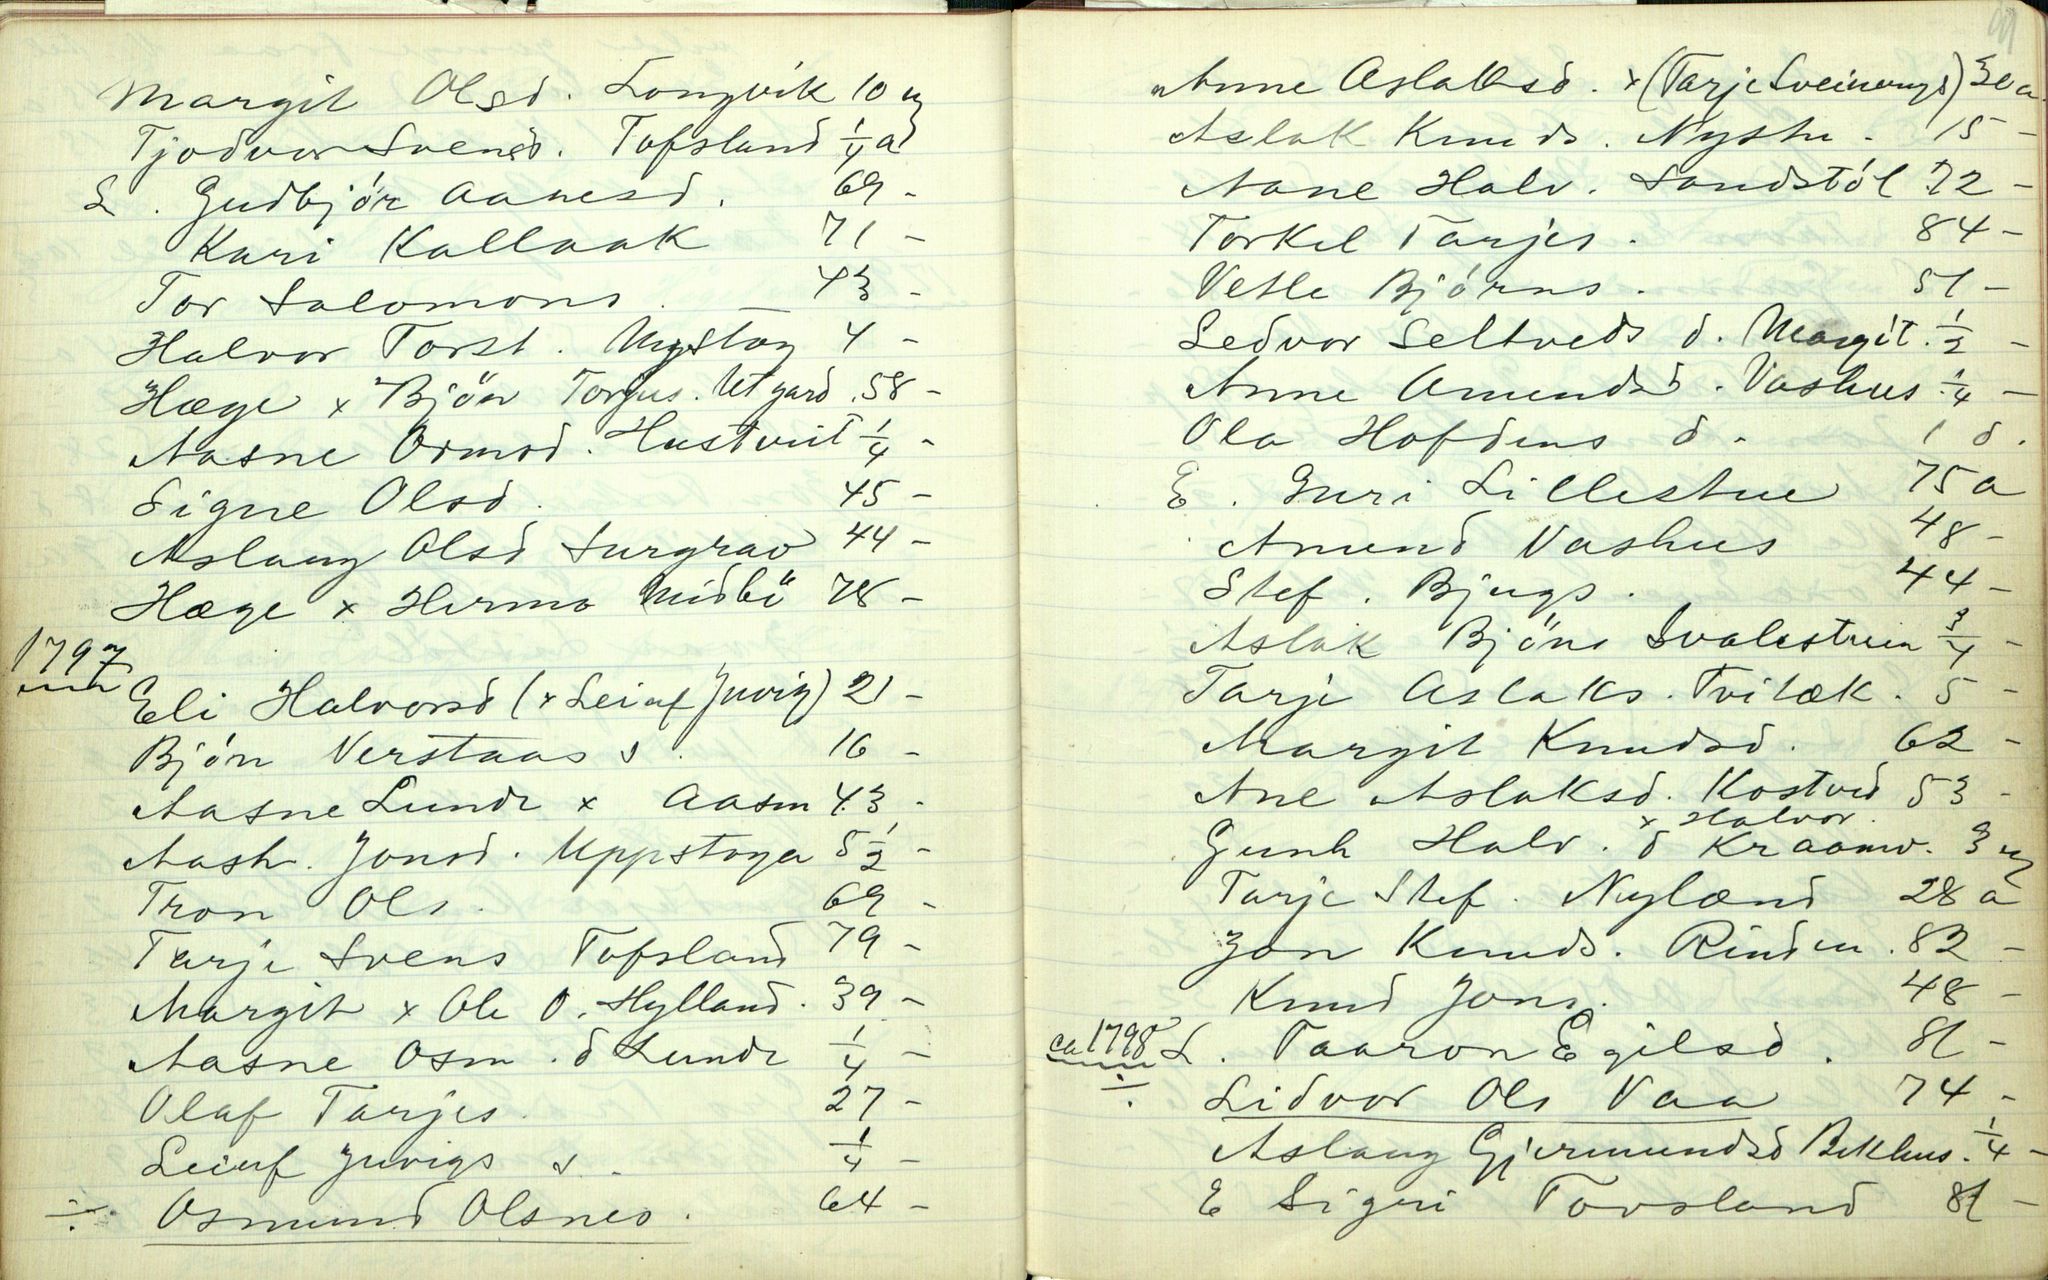 Margit Olsd. Longvik 10 m
Tjodvor Svensd. Tofsland 1/4 a
L. Gudbjór Aanesd. 69 -
Kari Kallaak 71 -
Tor Salomons. 43 -
Halvor Torst. Nystog 4 -
Hæge x Bjön Torjus. Utgard. 58 -
Aasne Ormsd. Hustveit 1/4 -
Signe Olsd. 45 -
Aslaug Olsd Surgrav 44 -
Hæge x Hermo Midbö 78 -
1797
Eli Halvorsd (x Leiuf Juvig) 21 -
Bjón Verstaas s. 16 -
Aasne Lunde x Aasm 43 -
Aash. Jonsd. Uppstoga 5 1/2 -
Tron Ols. 69 -
Tarje Svens Tofsland 79 -
Margit x Ole O. Hylland. 39 -
Aasne Osm. d Lunde 1/4 -
Olaf Tarjes. 27 -
Leiuf Juvigs s. 1/4 -
÷ Osmund Olsnes. 64 -
91
Anne Aslaksd. x (Tarje Sveinungs) 30 a.
Aslak Knuds. Nystu. 15 -
Aane Halv. Sandstól 72 -
Torkel Tarjes. 84 -
Vetle Bjórns. 51 -
Ledvor Seltveds d. Margit. 1/2 -
Anne Amundsd. Vashus. 1/4 -
Ola Hofdens d. 1 d.
E. Guri Lillestue 75 a
Amund Vashus 48 -
Stef. Bjugs. 44 -
Aslak Bjöns Svalestuen 3/4 -
Tarje Aslaks. Tvitæk. 5 -
Margit Knudsd. 62 -
Ane Aslaksd. Kostved 53 -
x Halvor.
Gunh Halv. d Kraamv. 3 m
Tarje Stef. Nylænd 28 a
Jon Knuds. Rinden. 82 -
Knud Jons. 48 -
ca 1798 L. Taaron Egilsd. 81 -
÷ Lidvor Ols Vaa 74 -
Aslaug Gjermundsd Bekhus. 1/4 -
E Sigri Tovsland 81 -